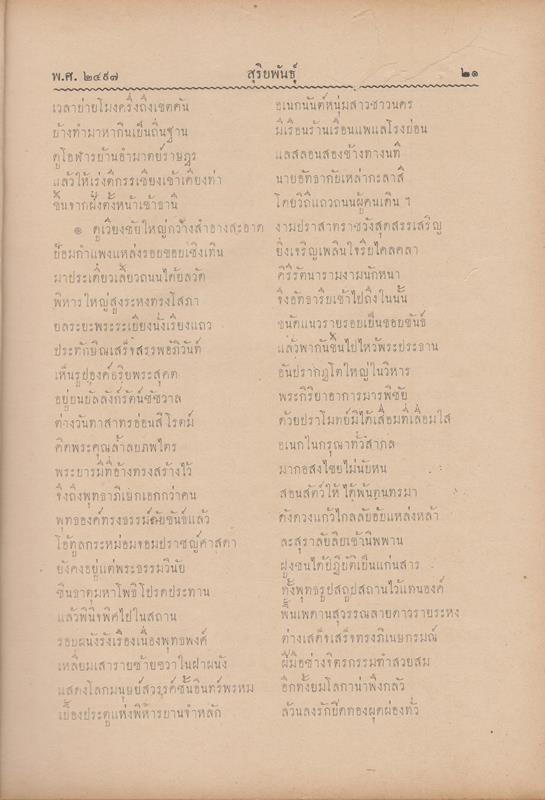 พ.ศ. ๒๔๙๗ สุริยพันธุ์ ๒๑
เวลาย่ายโมงครึ่งถึงเขตคัน อเนกนันต์หนุ่มสาวชาวนคร
ย้างทำมาหากินเย็นถิ่นฐาน มีเรือนร้านเรือนแพแลโรงย่อน
ดูโอฬารย้านอำมาตย์ราษฎร แลสลอนสองข้างทางนที
แล้วให้เร่งตีกรรเชียงเข้าเคียงท่า นายอัทธาภัยเหล่ากะลาสี
ขึ้นจากฝั่งตั้งหน้าเข้าธานี โดยวิถีแถวถนนผู้คนเดิน ฯ
๏ ดูเวียงชัยใหญ่กว้างสำอางสะอาด งามปราสาทราชวังสุดสรรเสริญ
ย้อมกำแพงแหล่งรอยซอยเชิงเทิน ยิ่งเจริญเพลินใจรีบไคลคลา
มาประเดี๋ยวเลี้ยวถนนได้ยลวัด ศิริรัตนารามงามนักหนา
พิหารใหญ่สูงระหงทรงโสภา จึงอัทธารีบเข้าไปถึงในนั้น
ยลระยะพระระเยียงนั่งเรียงแถว ชนัดแนวรายรอยเย็นซอยขันธ์
ประทักษิณเสร็จสรรพอภิวันท์ แล้วพากันขึ้นไปไหว้พระประธาน
เห็นรูปองค์ธรีบพระสุคต อันปรากฏโตใหญ่ในวิหาร
อยู่ยนยัลลังก์รัตน์ชัชวาล พระกิริยาอาการมารพิชัย
ต่างวันทาสาทรอ่อนศิโรตม์ ด้วยปราโมทย์มิได้เสื่อมที่เลื่อมใส
คิดพระคุณล้ำลยภพไตร อเนกในกรุณาทั่วสากล
พระยารมีที่อ้างทรงสร้างไว้ มากอสงไขยไม่นัยหน
จึงถึงพุทธาภิเษกเอกกว่าคน สอนสัตว์ให้ได้พ้นทุนทรมา
พุทธองค์ทรงธรรม์ดัยขันธ์แล้ว ดังดวงแก้วไกลลัยอัยแหล่งหล้า
โอ้ทูลกระหม่อมจอมปราชญ์ศาสดา ละสุราลัยลิยเข้านิพพาน
ยังคงอยู่แต่พระธรรมวินัย ฝูงชนได้ปฏิยัติเป็นแก่นสาร
ชินธาตุมหาโพธิโปรดประทาน ทั้งพุทธรูปสถูปสถานไว้แทนองค์
แล้วพินิจพิศไปในสถาน พื้นเพดานสุวรรณลายดาวรายระหง
รอยผนังรังเรืองเนื่องพุทธพงศ์ ต่างเสด็จเสร็จทรงภิเนษกรมณ์
เหลี่ยมเสารายซ้ายขวาในฝาผนัง ฝีมือช่างจิตรกรรมทำสวยสม
แสดงโลกมนุษย์สวรรค์ชั้นอินทร์พรหม อีกทั้งยมโลกาน่าพึงกลัว
เยื้องประตูแห่งพิหารยานจำหลัก ล้วนลงรักปิดทองผุดผ่องทั่ว